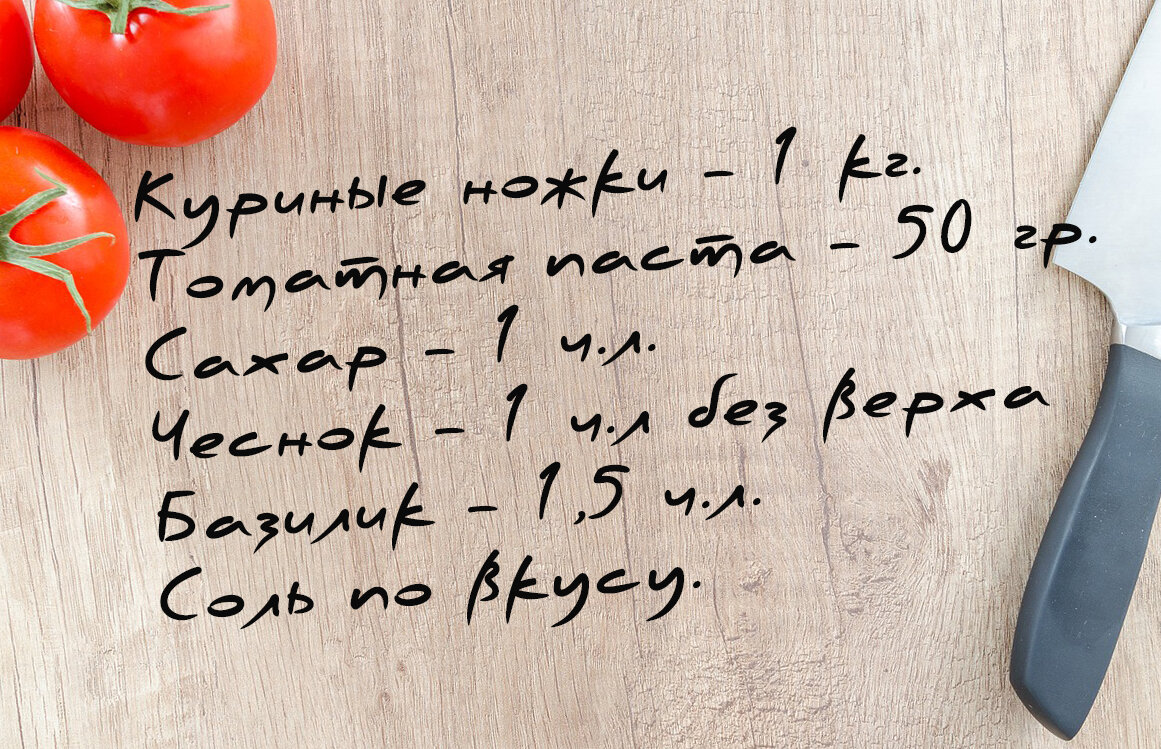 Куриные ножки - 1 кг.
Томатная паста - 50 гр.
Сахар - 1 ч.л.
Чеснок - 1 ч.л без верха
Базилик - 1,5 ч.л.
Соль по вкусу.